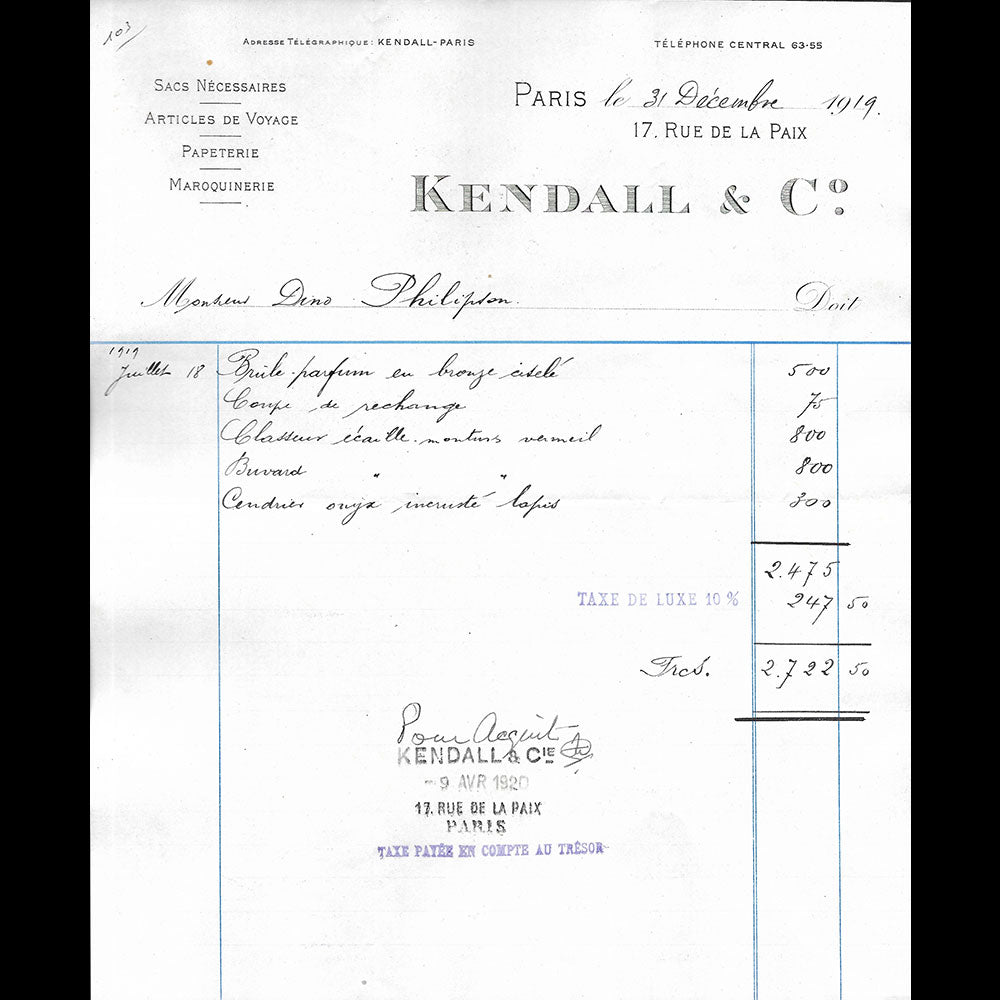 103
Adresse Télégraphique: KENDALL-PARIS
TÉLÉPHONE CENTRAL 63-55
SACS NÉCESSAIRES
ARTICLES DE VOYAGE
PAPETERIE
MAROQUINERIE
PARIS le 31 Décembre 1919.
17, RUE DE LA PAIX
KENDALL & Cº
Monsieur Dino Philipson. Doit
1919
Juillet 18 Brûle-parfum en bronze ciselé 500
Coupe de rechange 75
Classeur écaille monture vermeil 800
Buvard " " 800
Cendrier onyx incrusté lapis 300
2.475
TAXE DE LUXE 10 % 247 50
Frcs. 2.722 50
Pour Acquit
KENDALL & CIE
- 9 AVR 1920
17, RUE DE LA PAIX
PARIS
TAXE PAYÉE EN COMPTE AU TRÉSOR